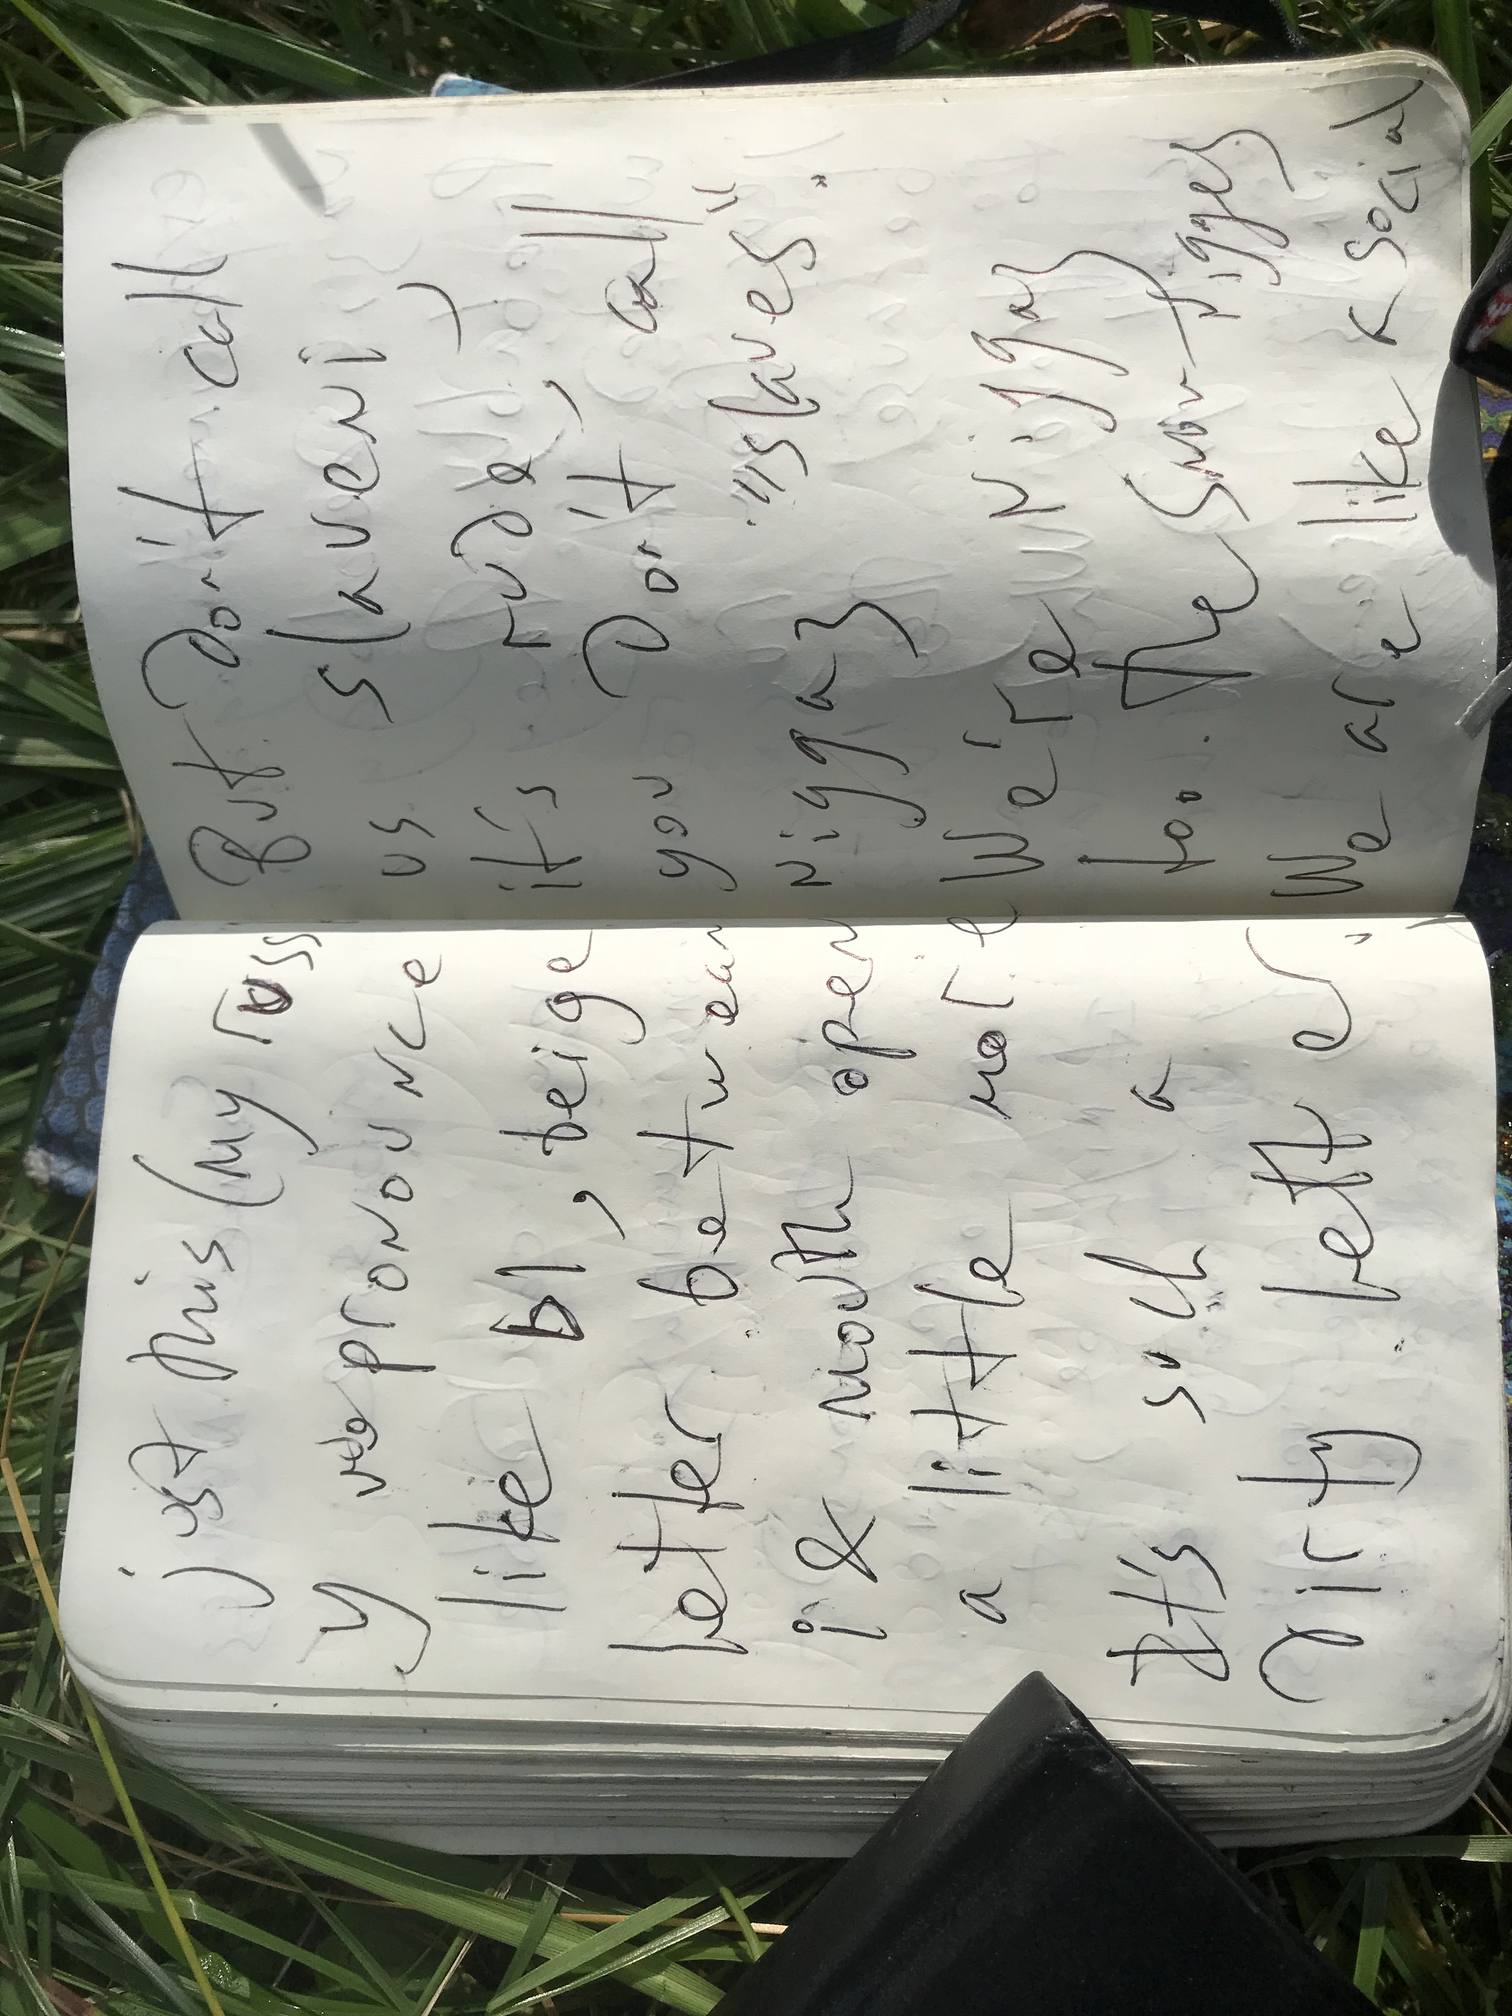 just this (my russ
y we pronounce
like ы, beige
letter between
i & mouth open
a little more
It's such a
dirty letter"
But don't call
us slaveni,
it's rude,
don't call
you "slaves".
Niggaz
We're Niggaz
too. The Snow Nigges
We are like social